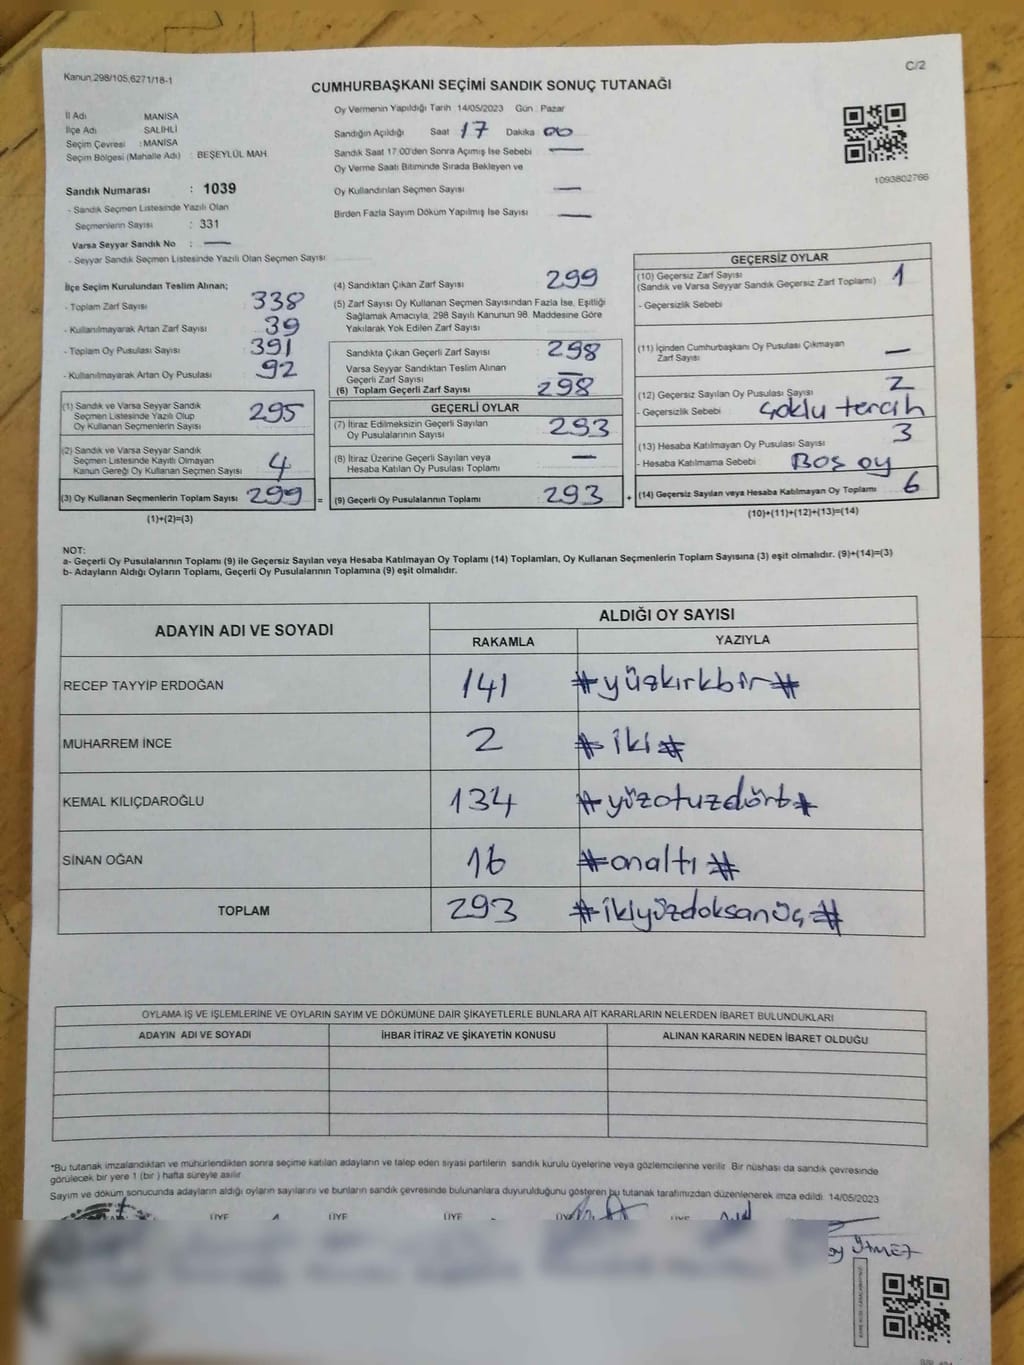 Kanun,298/105,6271/18-1
C/2
CUMHURBAŞKANI SEÇİMİ SANDIK SONUÇ TUTANAĞI
İl Adı MANİSA
İlçe Adı SALİHLİ
Seçim Çevresi : MANİSA
Seçim Bölgesi (Mahalle Adı) : BEŞEYLÜL MAH.
Sandık Numarası : 1039
- Sandık Seçmen Listesinde Yazılı Olan
Seçmenlerin Sayısı : 331
Varsa Seyyar Sandık No : —
- Seyyar Sandık Seçmen Listesinde Yazılı Olan Seçmen Sayısı
Oy Vermenin Yapıldığı Tarih 14/05/2023 Gün : Pazar
Sandığın Açıldığı Saat 17 Dakika 00
Sandık Saat 17:00'den Sonra Açımış İse Sebebi —
Oy Verme Saati Bitiminde Sırada Bekleyen ve
Oy Kullandırılan Seçmen Sayısı —
Birden Fazla Sayım Döküm Yapılmış İse Sayısı —
1093802766
İlçe Seçim Kurulundan Teslim Alınan;
- Toplam Zarf Sayısı 338
- Kullanılmayarak Artan Zarf Sayısı 39
- Toplam Oy Pusulası Sayısı 391
- Kullanılmayarak Artan Oy Pusulası 92
(1) Sandık ve Varsa Seyyar Sandık
Seçmen Listesinde Yazılı Olup
Oy Kullanan Seçmenlerin Sayısı 295
(2) Sandık ve Varsa Seyyar Sandık
Seçmen Listesinde Kayıtlı Olmayan
Kanun Gereği Oy Kullanan Seçmen Sayısı 4
(3) Oy Kullanan Seçmenlerin Toplam Sayısı 299 =
(1)+(2)=(3)
(4) Sandıktan Çıkan Zarf Sayısı 299
(5) Zarf Sayısı Oy Kullanan Seçmen Sayısından Fazla İse, Eşitliği
Sağlamak Amacıyla, 298 Sayılı Kanunun 98. Maddesine Göre
Yakılarak Yok Edilen Zarf Sayısı
Sandıkta Çıkan Geçerli Zarf Sayısı 298
Varsa Seyyar Sandıktan Teslim Alınan
Geçerli Zarf Sayısı —
(6) Toplam Geçerli Zarf Sayısı 298
GEÇERLİ OYLAR
(7) İtiraz Edilmeksizin Geçerli Sayılan
Oy Pusulalarının Sayısı 293
(8) İtiraz Üzerine Geçerli Sayılan veya
Hesaba Katılan Oy Pusulası Toplamı —
(9) Geçerli Oy Pusulalarının Toplamı 293 +
GEÇERSİZ OYLAR
(10) Geçersiz Zarf Sayısı 1
(Sandık ve Varsa Seyyar Sandık Geçersiz Zarf Toplamı)
- Geçersizlik Sebebi
(11) İçinden Cumhurbaşkanı Oy Pusulası Çıkmayan
Zarf Sayısı —
(12) Geçersiz Sayılan Oy Pusulası Sayısı 2
- Geçersizlik Sebebi çoklu tercih
(13) Hesaba Katılmayan Oy Pusulası Sayısı 3
- Hesaba Katılmama Sebebi Boş oy
(14) Geçersiz Sayılan veya Hesaba Katılmayan Oy Toplamı 6
(10)+(11)+(12)+(13)=(14)
NOT:
a- Geçerli Oy Pusulalarının Toplamı (9) ile Geçersiz Sayılan veya Hesaba Katılmayan Oy Toplamı (14) Toplamları, Oy Kullanan Seçmenlerin Toplam Sayısına (3) eşit olmalıdır. (9)+(14)=(3)
b- Adayların Aldığı Oyların Toplamı, Geçerli Oy Pusulalarının Toplamına (9) eşit olmalıdır.
ADAYIN ADI VE SOYADI ALDIĞI OY SAYISI
RAKAMLA YAZIYLA
RECEP TAYYİP ERDOĞAN 141 #yüzkırkbir#
MUHARREM İNCE 2 #iki#
KEMAL KILIÇDAROĞLU 134 #yüzotuzdört#
SİNAN OĞAN 16 #onaltı#
TOPLAM 293 #ikiyüzdoksanüç#
OYLAMA İŞ VE İŞLEMLERİNE VE OYLARIN SAYIM VE DÖKÜMÜNE DAİR ŞİKAYETLERLE BUNLARA AİT KARARLARIN NELERDEN İBARET BULUNDUKLARI
ADAYIN ADI VE SOYADI İHBAR İTİRAZ VE ŞİKAYETİN KONUSU ALINAN KARARIN NEDEN İBARET OLDUĞU
*Bu tutanak imzalandıktan ve mühürlendikten sonra seçime katılan adayların ve talep eden siyasi partilerin sandık kurulu üyelerine veya gözlemcilerine verilir. Bir nüshası da sandık çevresinde
görülecek bir yere 1 (bir) hafta süreyle asılır.
Sayım ve döküm sonucunda adayların aldığı oyların sayılarını ve bunların sandık çevresinde bulunanlara duyurulduğunu gösteren bu tutanak tarafımızdan düzenlenerek imza edildi. 14/05/2023
ÜYE ÜYE ÜYE ÜYE ÜYE